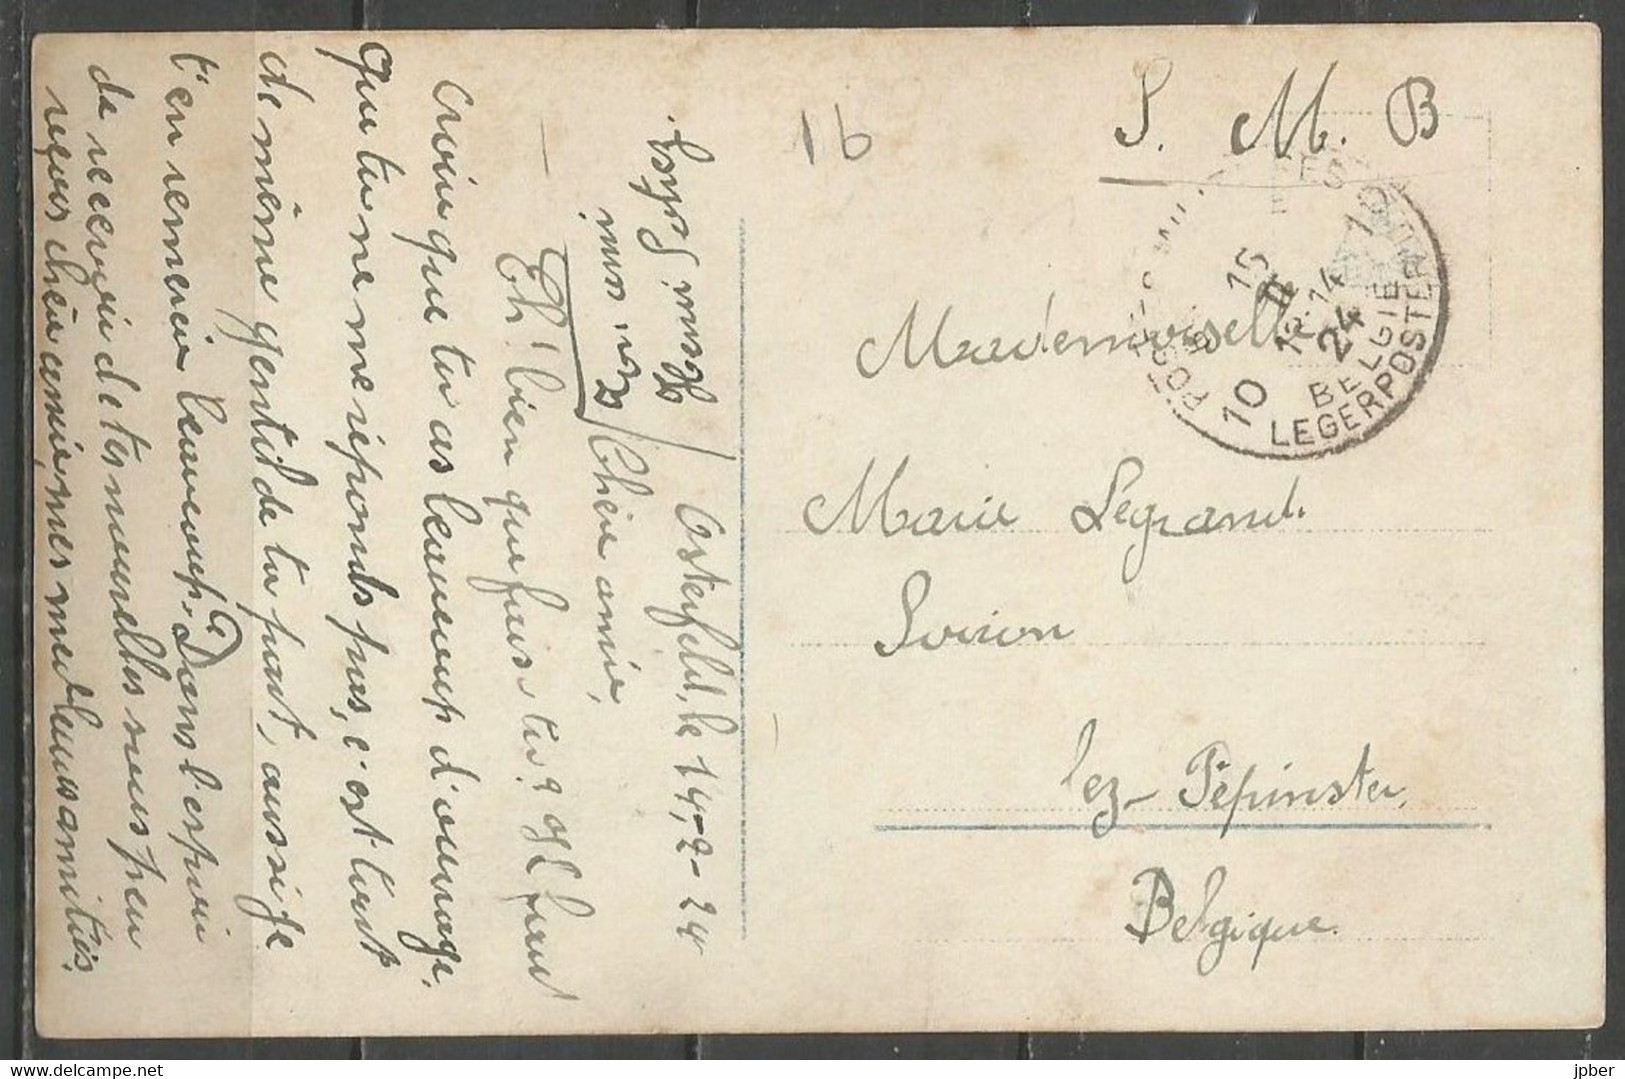 Osterfeld, le 14-2-24
Chère amie,
Eh! bien que fais-tu? Il faut
croire que tu as beaucoup d'ouvrage,
que tu ne me réponds pas, c'est tout
de même gentil de ta part, aussi je
t'en remercie beaucoup. Dans l'espoir
de recevoir de tes nouvelles sous peu
reçois chère amie, mes meilleures amitiés.
Ton ami
Henri
16
S. M. B
Mademoiselle
Marie Legrand.
Soiron
lez-Pépinster
Belgique.
POSTES
15
II
12-14
24
10
10
BELGIE
LEGERPOSTERIJ
jpber